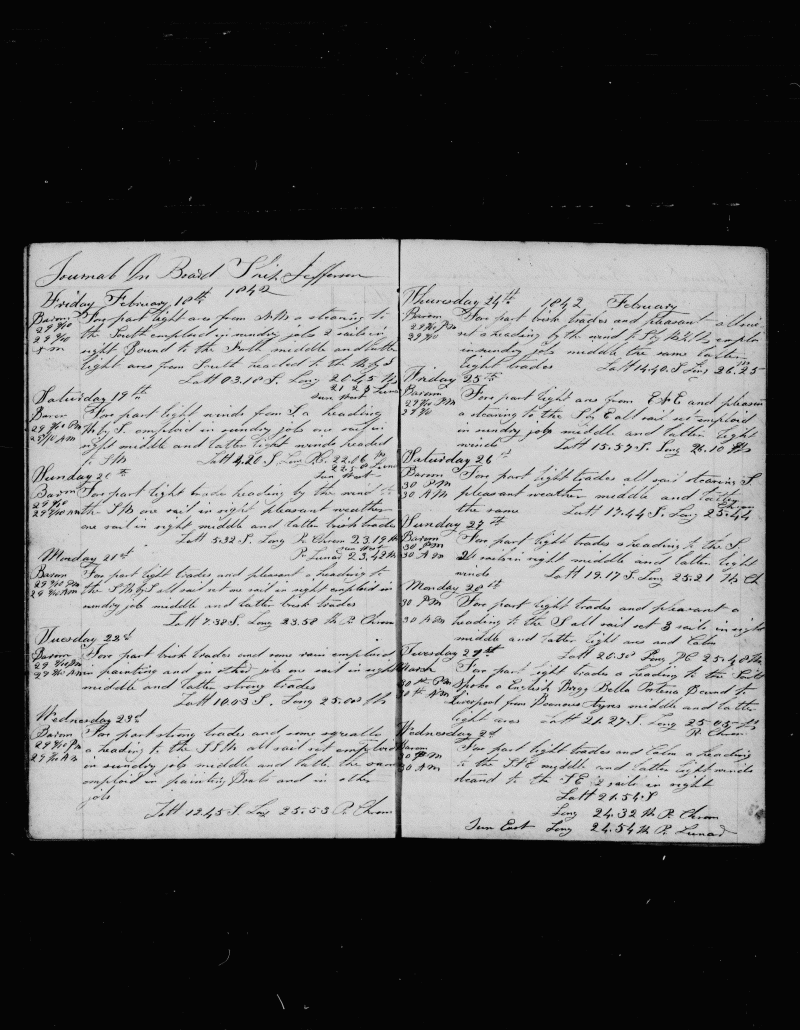 Journal On Board Ship Jefferson
Friday February 18th 1842
Barom Fore part light ares from a steaning to
29 9/10 the South employd in sundry jobs 2 sails in
29 9/10 sight Bound to the middle and latter
AM light ares from South headed to the W by S
Latt 03.18 S. Long 20.45
21 23
Sun West
Saturday 19th
Barom Fore part light winds from S a heading
29 9/10 PM W by S. employd in sundry jobs one sail in
29 9/10 AM sight middle and latter light winds headed
to SW Latt 4.20 S Long 22.06
Sun West
Sunday 20th
Barom For part light trade heading by the wind to
29 9/10 the SW one sail in sight pleasant weather
29 9/10 AM one sail in sight middle and latter brisk trades
Latt 5.32 S. Long P. Chrom 23.19 W
Sun West
P. Lunar 23.42 W
Monday 21st
Barom Fore part light trades and pleasant a heading to
29 9/10 PM the S W by S all sail set one sail in sight employd in
29 9/10 AM sundry job middle and latter brisk trades
Latt 7.38 S. Long 23.58 W P. Chrom
Tuesday 22d
Barom For part brisk trades and some rain employd
29 9/10 PM in painting and in other job one sail in sight
29 9/10 AM middle and latter strong trades
Latt 10.03 S. Long 25.00 W
Wednesday 23d
Barom For part strong trades and some squalls
29 9/10 PM a heading to the SSW all sail set employd
29 9/10 AM in sundry job middle and latter the same
employd in painting Boats and in other
jobs
Latt 12.45 S. Long 25.53 P. Chrom
Thursday 24th 1842 February
Barom Fore part brisk trades and pleasant all sail
29 9/10 PM set a heading by the wind to employ
29 9/10 in sundry jobs middle the same latter
light trades Latt 14.40. S Long 26.25
Friday 25th
Barom For part light ares from E & E and pleasan
29 9/10 PM a stearing to the all sail set employd
29 9/10 in sundry jobs middle and latter light
winds Latt 15.57 S. Long 26.10
Saturday 26th
Barom For part light trades all sail stearing S
30 PM pleasant weather middle and latter
30 AM the same Latt 17.44 S. Long Chrom 25.44
Sunday 27th
Barom For part light trades a heading to the S.
30 PM sails in sight middle and latter light
30 AM winds Latt 19.17 S. Long 25.21 W Ch
Monday 28th
30 PM For part light trades and pleasant a
30 AM heading to the S all sail set 3 sails in sight
middle and latter light ares and Calm
Latt 20.30 Long PC 25.48 W
Tuesday 29th
March For part light trades a heading to the South
30 PM Spoke a English Brigg Bella Porteria Bound to
30 AM Liverpool from Buenos Ayres middle and latter
light ares Latt 21.27 S. Long 25.05 W
P. Chrom
Wednesday 2d
Barom For part light trades and Calm a heading
30 PM to the SSE middle and latter light winds
30 AM steand to the SE 2 sails in sight
Latt 21.54 S
Long 24.32 W P. Chrom
Sun East Long 24.54 W P. Lunar